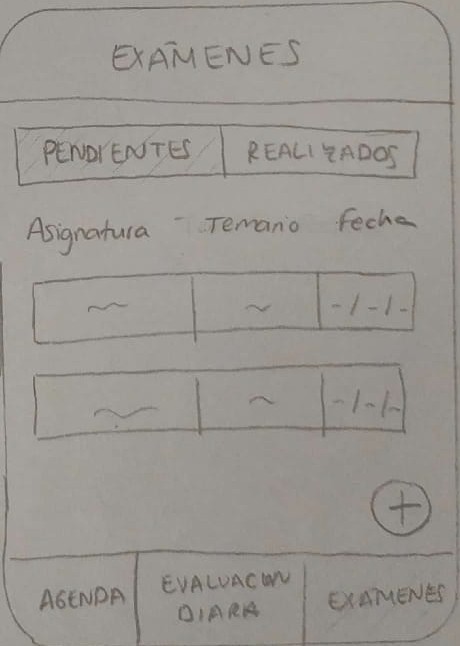 EXÁMENES
PENDIENTES REALIZADOS
Asignatura - Temario Fecha
~ ~ -/-/-
~ ~ -/-/-
+
AGENDA EVALUACION DIARIA EXAMENES